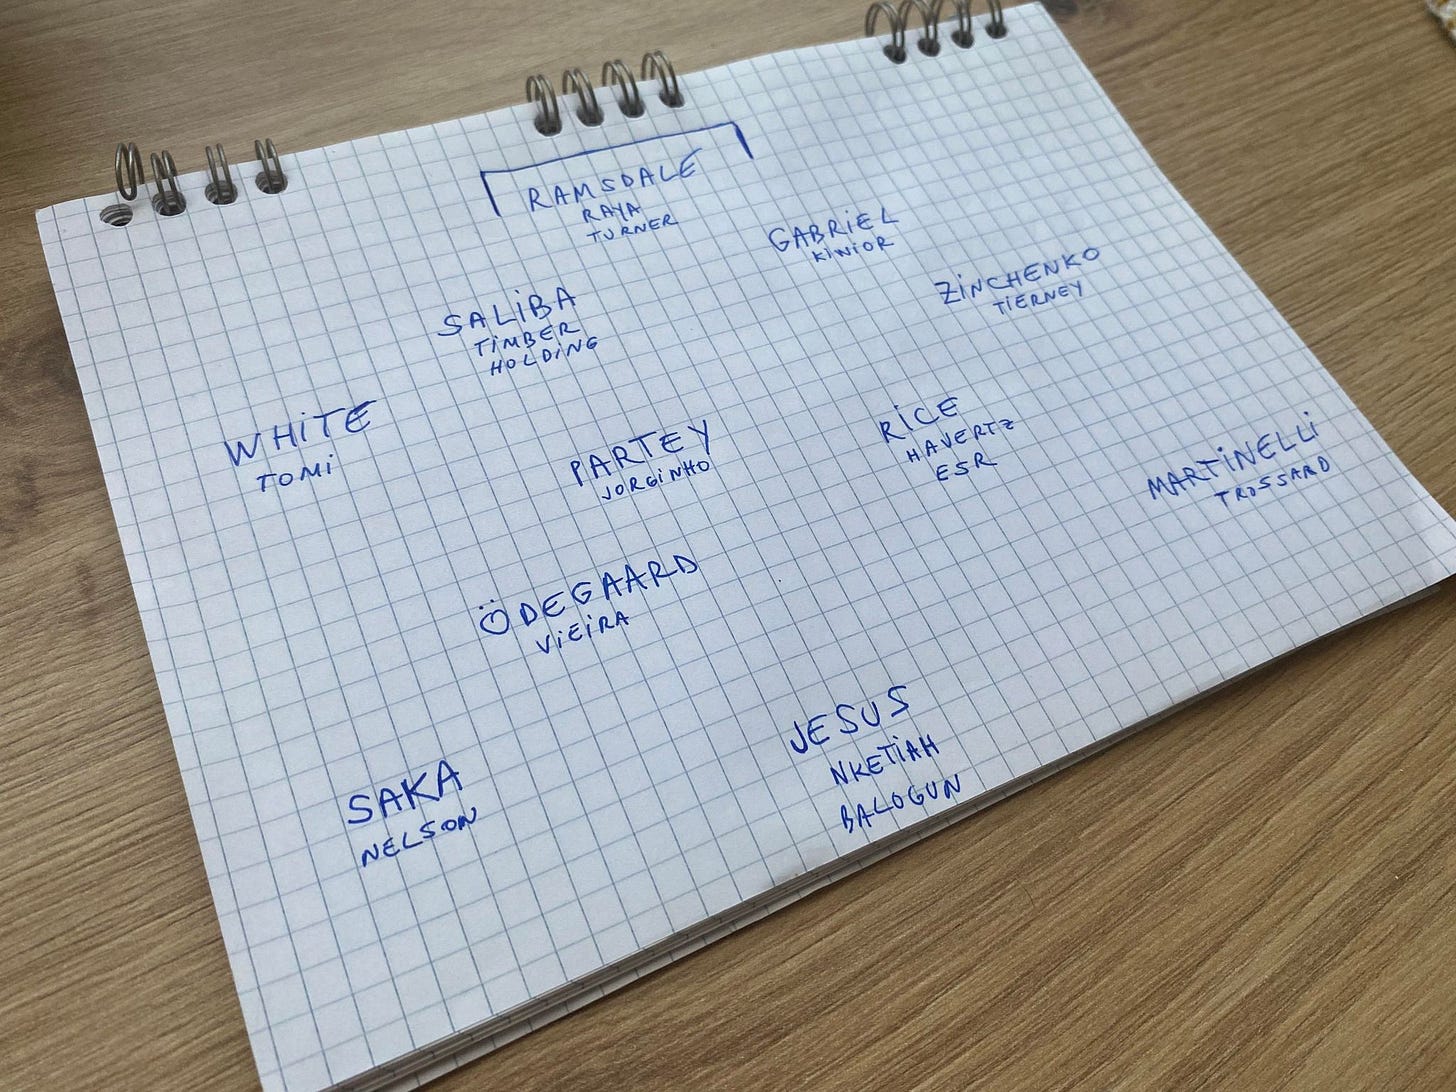 RAMSDALE
RAYA
TURNER
GABRiEL
KiWiOR
ZiNCHENKO
TiERNEY
SALiBA
TiMBER
HOLDiNG
WHiTE
TOMi
PARTEY
JORGiNHO
RiCE
HAVERTZ
ESR
MARTiNELLi
TROSSARD
ÖDEGAARD
ViEiRA
SAKA
NELSON
JESUS
NKETiAH
BALOGUN